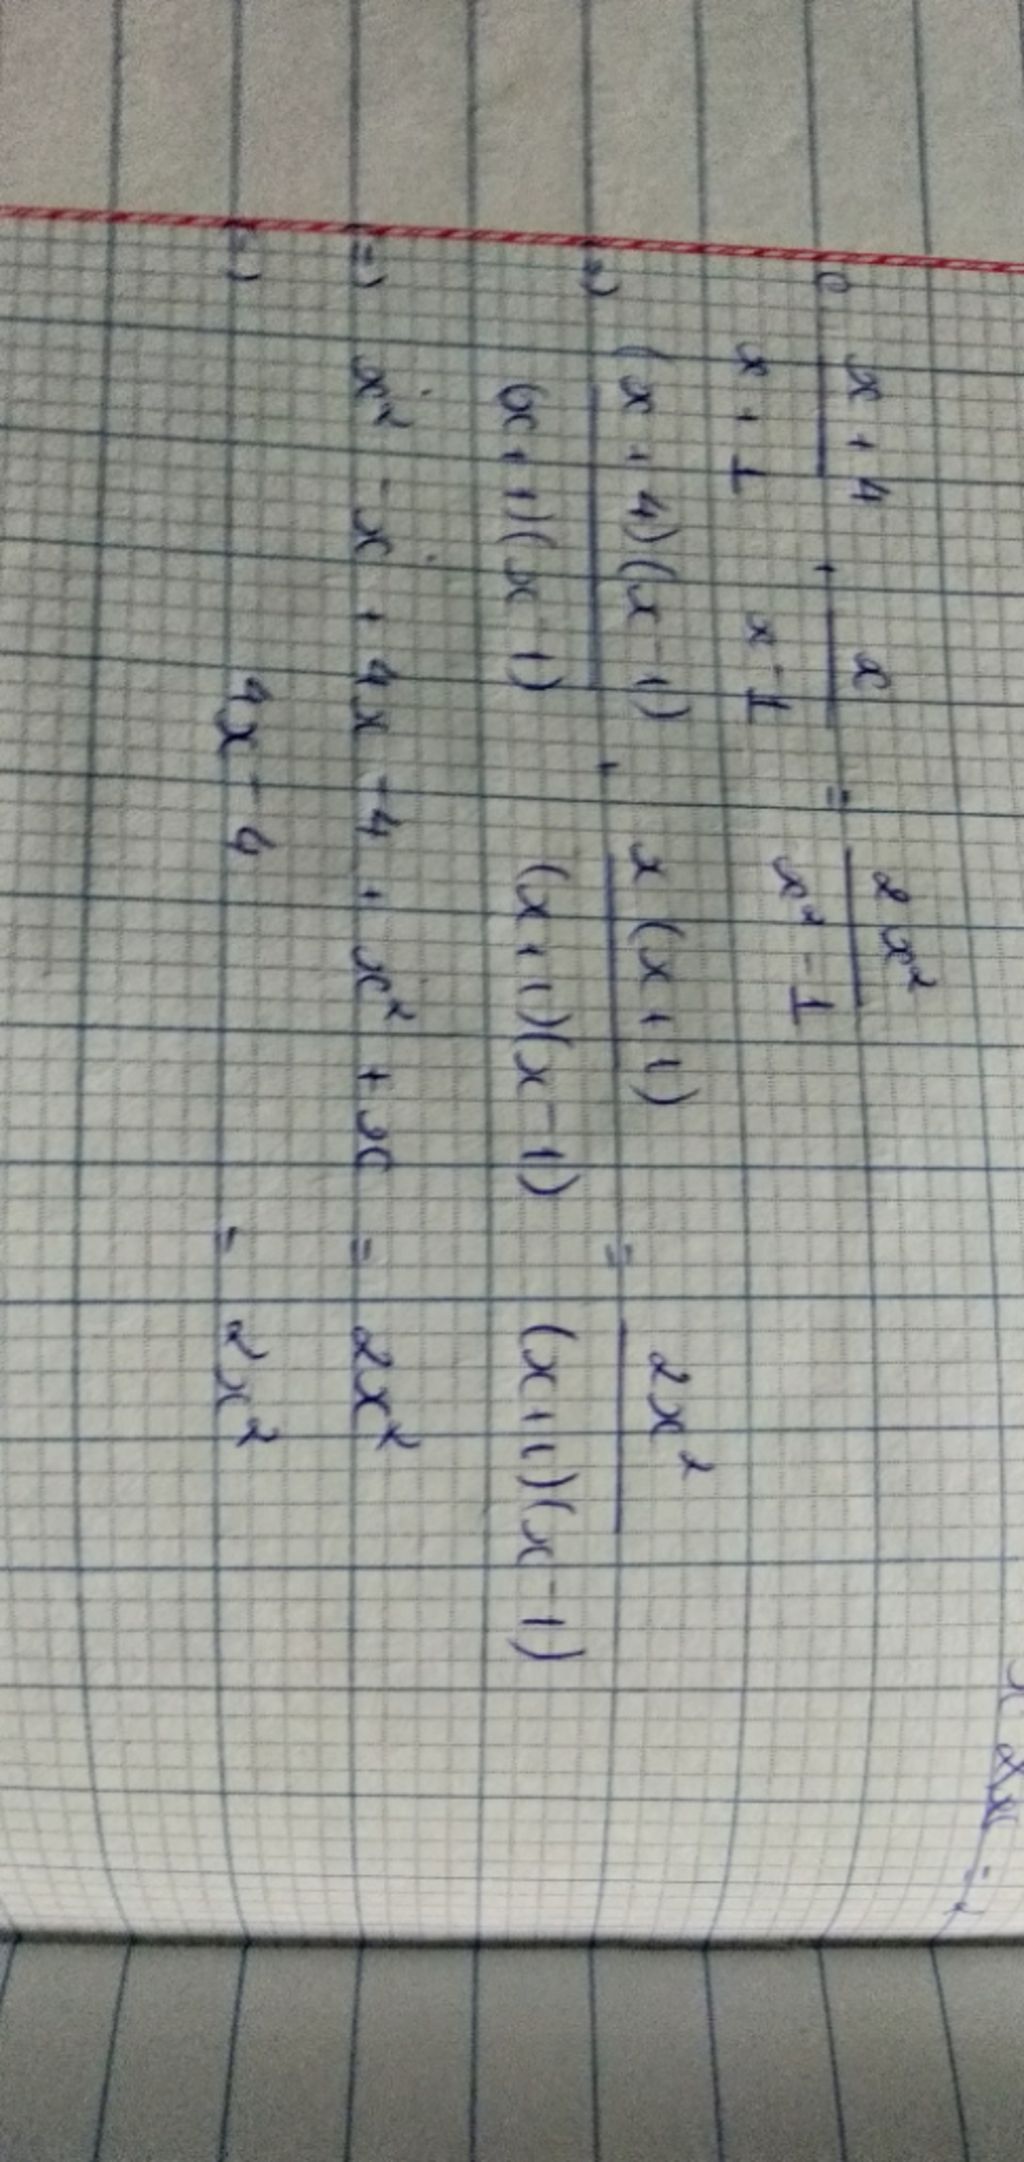 c) (x + 4)/(x + 1) + x/(x - 1) = 2x²/(x² - 1)
=) (x + 4)(x - 1)/(x + 1)(x - 1) + x(x + 1)/(x + 1)(x - 1) = 2x²/(x + 1)(x - 1)
=) x² - x + 4x - 4 + x² + x = 2x²
=) 4x - 4 = 2x²